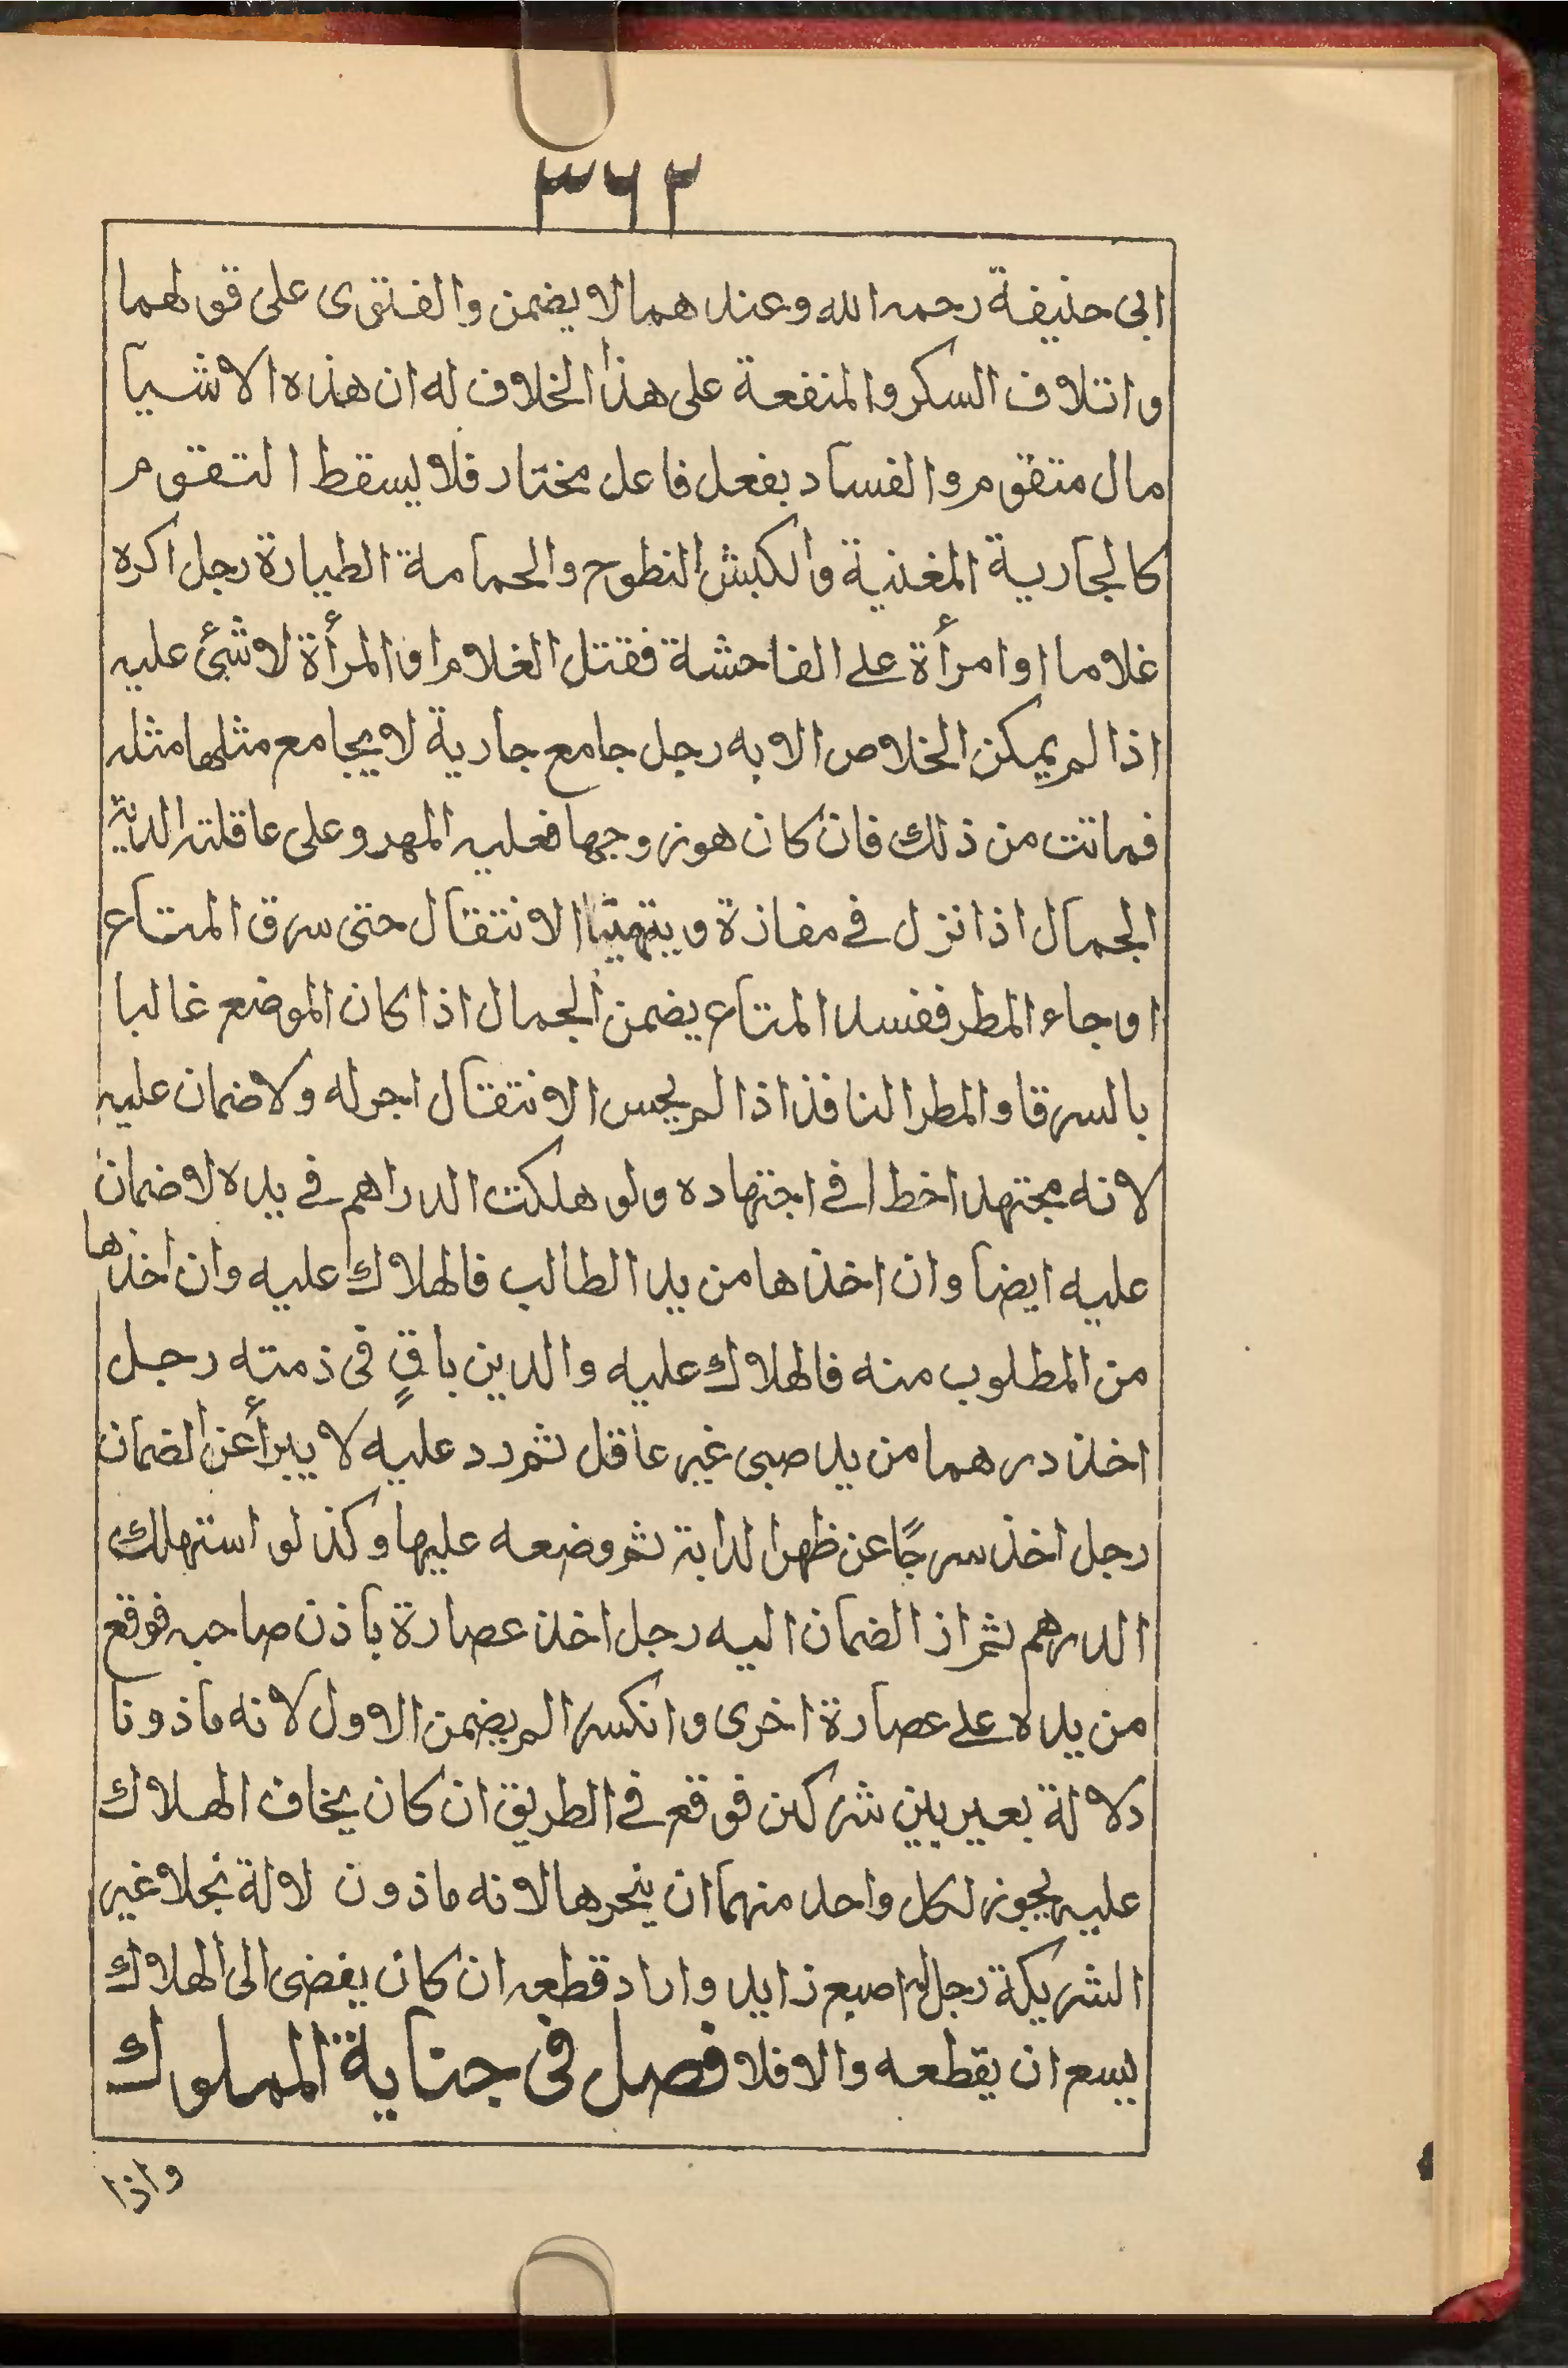 ٣٦٢
ابى حنيفة رحمه الله وعندهما لا يضمن والفتوى على قولهما
واتلاف السكر والمنفعة على هذا الخلاف له ان هذه الاشيا
مال متقوم والفساد بفعل فاعل مختار فلا يسقط التقوم
كالجارية المغنية والكبش النطوح والحمامة الطيارة رجل اكره
غلاما او امرأة على الفاحشة فقتل الغلام او المرأة لا شئ عليه
اذا لم يمكن الخلاص الا به رجل جامع جارية لا يجامع مثلها مثله
فماتت من ذلك فان كان هو زوجها فعليه المهر وعلى عاقلته الدية
الجمال اذا نزل فى مفازة ويتهيّا الانتقال حتى سرق المتاع
او جاء المطر ففسد المتاع يضمن الجمال اذا كان الموضع غالبا
بالسرقا والمطر النافذ اذا لم يحس الانتقال اجر له ولا ضمان عليه
لانه مجتهد اخطا فى اجتهاده ولو هلكت الدراهم فى يده لا ضمان
عليه ايضا وان اخذها من يد الطالب فالهلاك عليه وان اخذها
من المطلوب منه فالهلاك عليه والدين باقٍ فى ذمته رجل
اخذ درهما من يد صبى غير عاقل ثم رد عليه لا يبرأ عن الضمان
رجل اخذ سرجًا عن ظهر الدابة ثم وضعه عليها وكذ لو استهلك
الدرهم ثم اذ الضمان اليه رجل اخذ عصارة باذن صاحبه فوقع
من يده على عصارة اخرى وانكسر الم يضمن الاول لانه ماذونا
دلالة بعير بين شركين فوقع فى الطريق ان كان يخاف الهلاك
عليه يجوز لكل واحد منهما ان ينحرها لانه ماذون لالة بخلا غير
الشريكة رجل له اصبع زايد واراد قطعه ان كان يفضى الى الهلاك
ليسع ان يقطعه والا فلا فصل فى جناية المملوك
واذا